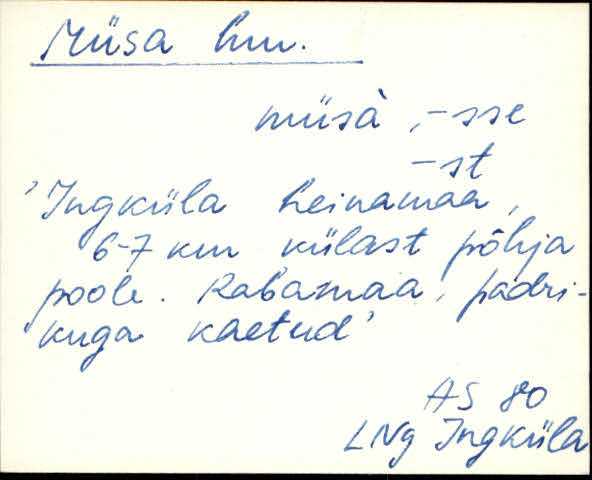 Müsa hm.
müsà, -sse
-st
'Ingküla heinamaa,
6-7 km külast põhja
poole. Rabamaa, padri-
kuga kaetud'
AS 80
LNg Ingküla